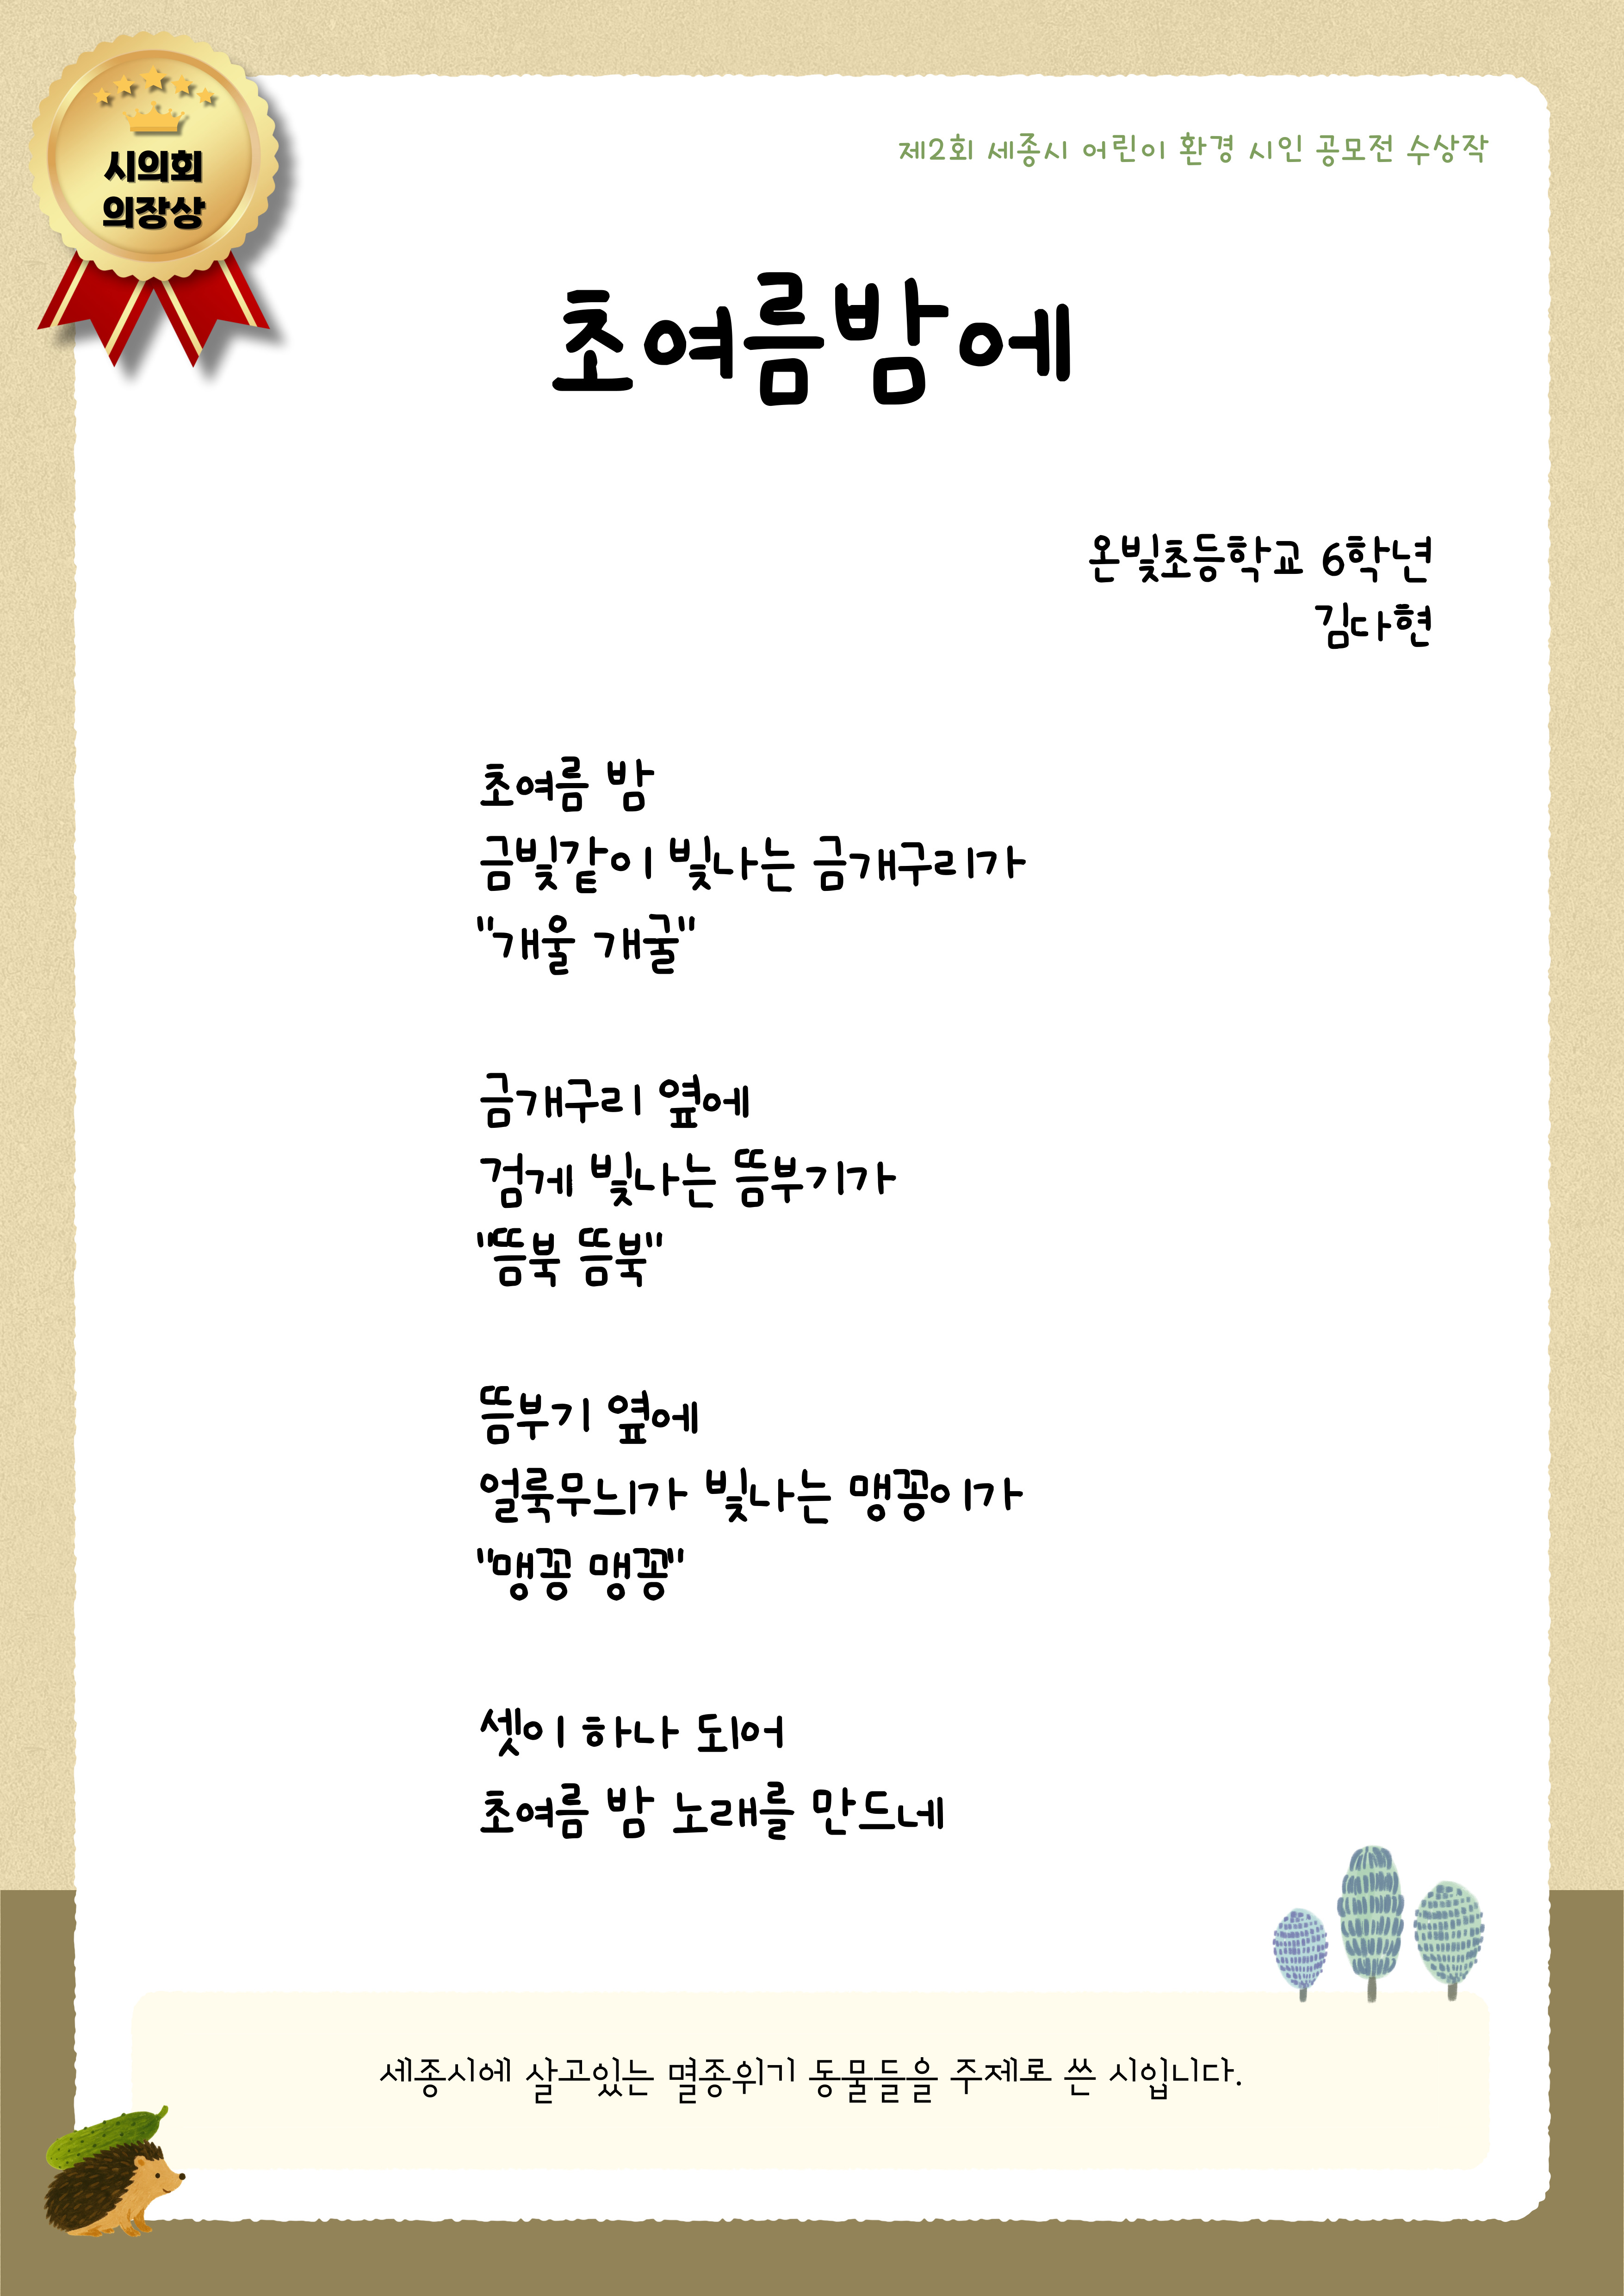 시의회
의장상
제2회 세종시 어린이 환경 시인 공모전 수상작
초여름밤에
온빛초등학교 6학년
김다현
초여름 밤
금빛같이 빛나는 금개구리가
"개울 개굴"
금개구리 옆에
검게 빛나는 뜸부기가
"뜸북 뜸북"
뜸부기 옆에
얼룩무늬가 빛나는 맹꽁이가
"맹꽁 맹꽁"
셋이 하나 되어
초여름 밤 노래를 만드네
세종시에 살고있는 멸종위기 동물들을 주제로 쓴 시입니다.